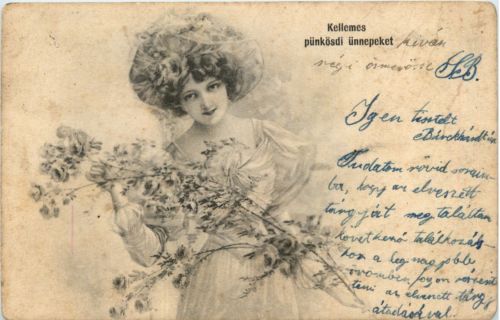 Kellemes
pünkösdi ünnepeket kíván
régi ismerőse
Igen tisztelt
Tudatom rövid soraim-
ba, hogy az elveszett
tárgyát megtaláltam
következő találkozás-
kor a leg nagyobb
örömömben fogom
az elveszett tárgy
átadásával.